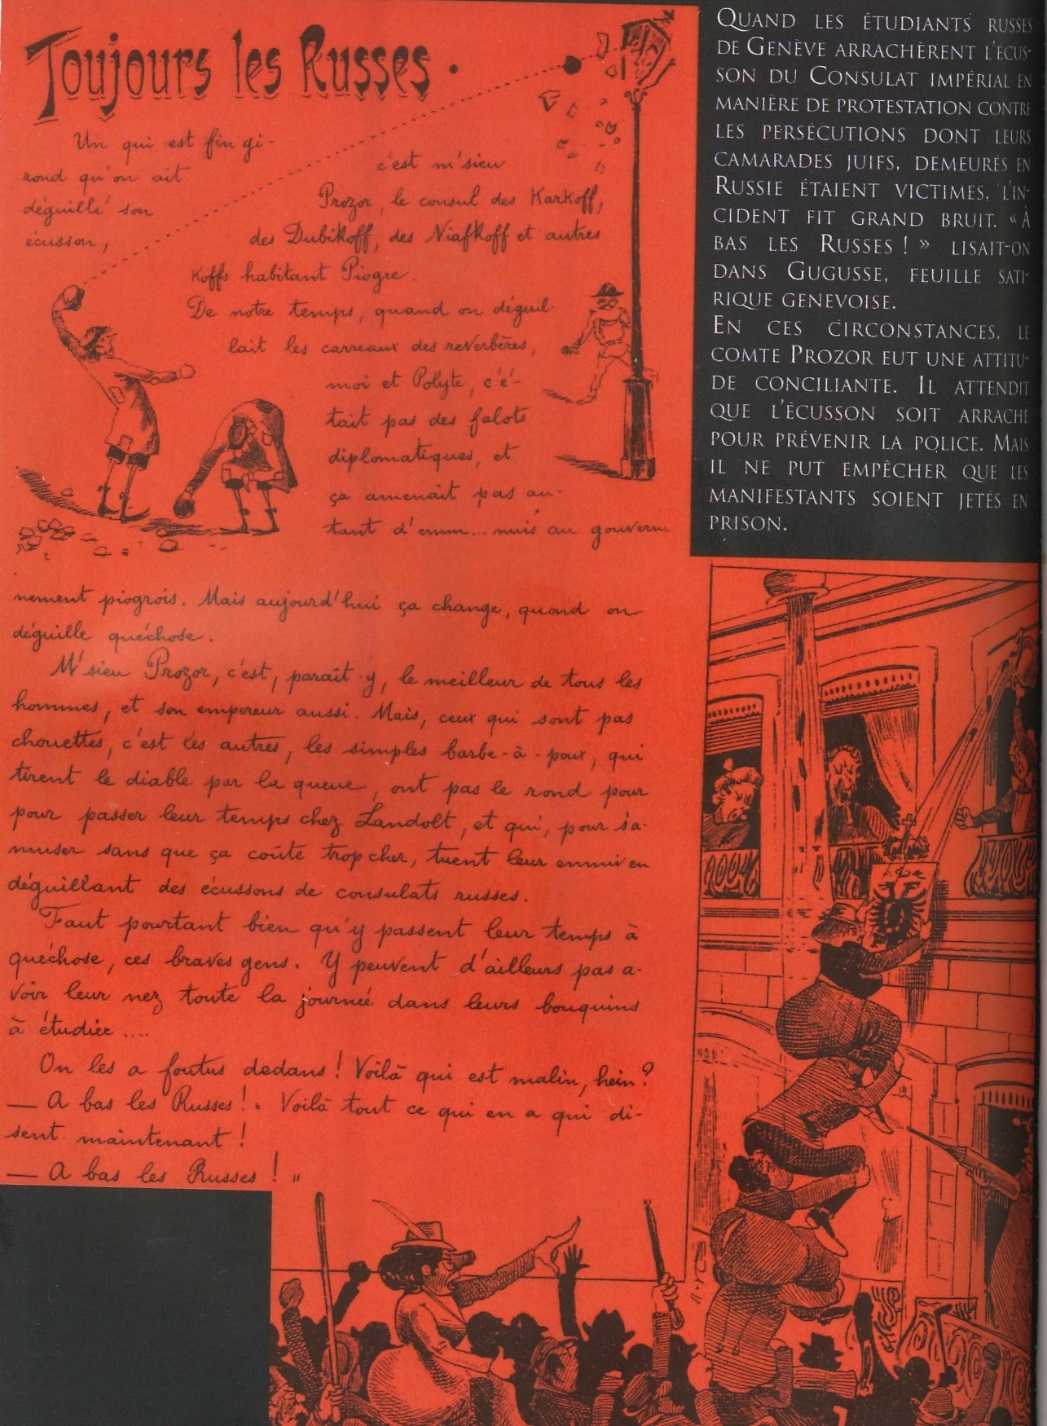 Toujours les Russes.
Un qui est fin gi-
rond qu'on ait
déguillé son
écusson,
c'est m'sieu
Prozor, le consul des Karkoff,
des Dubikoff, des Niafkoff et autres
Koffs habitant Piogre.
De notre temps, quand on déguil-
lait les carreaux des reverbères,
moi et Polyte, c'é-
tait pas des falots
diplomatiques, et
ça amenait pas au-
tant d'emm... nuis au gouverne
nement piogrois. Mais aujourd'hui ça change, quand on
déguille quéchose.
M'sieu Prozor, c'est, paraît-y, le meilleur de tous les
hommes, et son empereur aussi. Mais, ceux qui sont pas
chouettes, c'est les autres, les simples barbe-à-poux, qui
tirent le diable par la queue, ont pas le rond pour
pour passer leur temps chez Landolt, et qui, pour s'a-
muser sans que ça coûte trop cher, tuent leur ennui en
déguillant des écussons de consulats russes.
Faut pourtant bien qu'y passent leur temps à
quéchose, ces braves gens. Y peuvent d'ailleurs pas a-
voir leur nez toute la journée dans leurs bouquins
à étudier....
On les a foutus dedans! Voilà qui est malin, hein?
— A bas les Russes!. Voilà tout ce qui en a qui di-
sent maintenant!
— A bas les Russes! "
QUAND LES ÉTUDIANTS RUSSES
DE GENÈVE ARRACHÈRENT L'ÉCUS-
SON DU CONSULAT IMPÉRIAL EN
MANIÈRE DE PROTESTATION CONTRE
LES PERSÉCUTIONS DONT LEURS
CAMARADES JUIFS, DEMEURÉS EN
RUSSIE ÉTAIENT VICTIMES, L'IN-
CIDENT FIT GRAND BRUIT. « À
BAS LES RUSSES ! » LISAIT-ON
DANS GUGUSSE, FEUILLE SATI-
RIQUE GENEVOISE.
EN CES CIRCONSTANCES, LE
COMTE PROZOR EUT UNE ATTITU-
DE CONCILIANTE. IL ATTENDIT
QUE L'ÉCUSSON SOIT ARRACHÉ
POUR PRÉVENIR LA POLICE. MAIS
IL NE PUT EMPÊCHER QUE LES
MANIFESTANTS SOIENT JETÉS EN
PRISON.